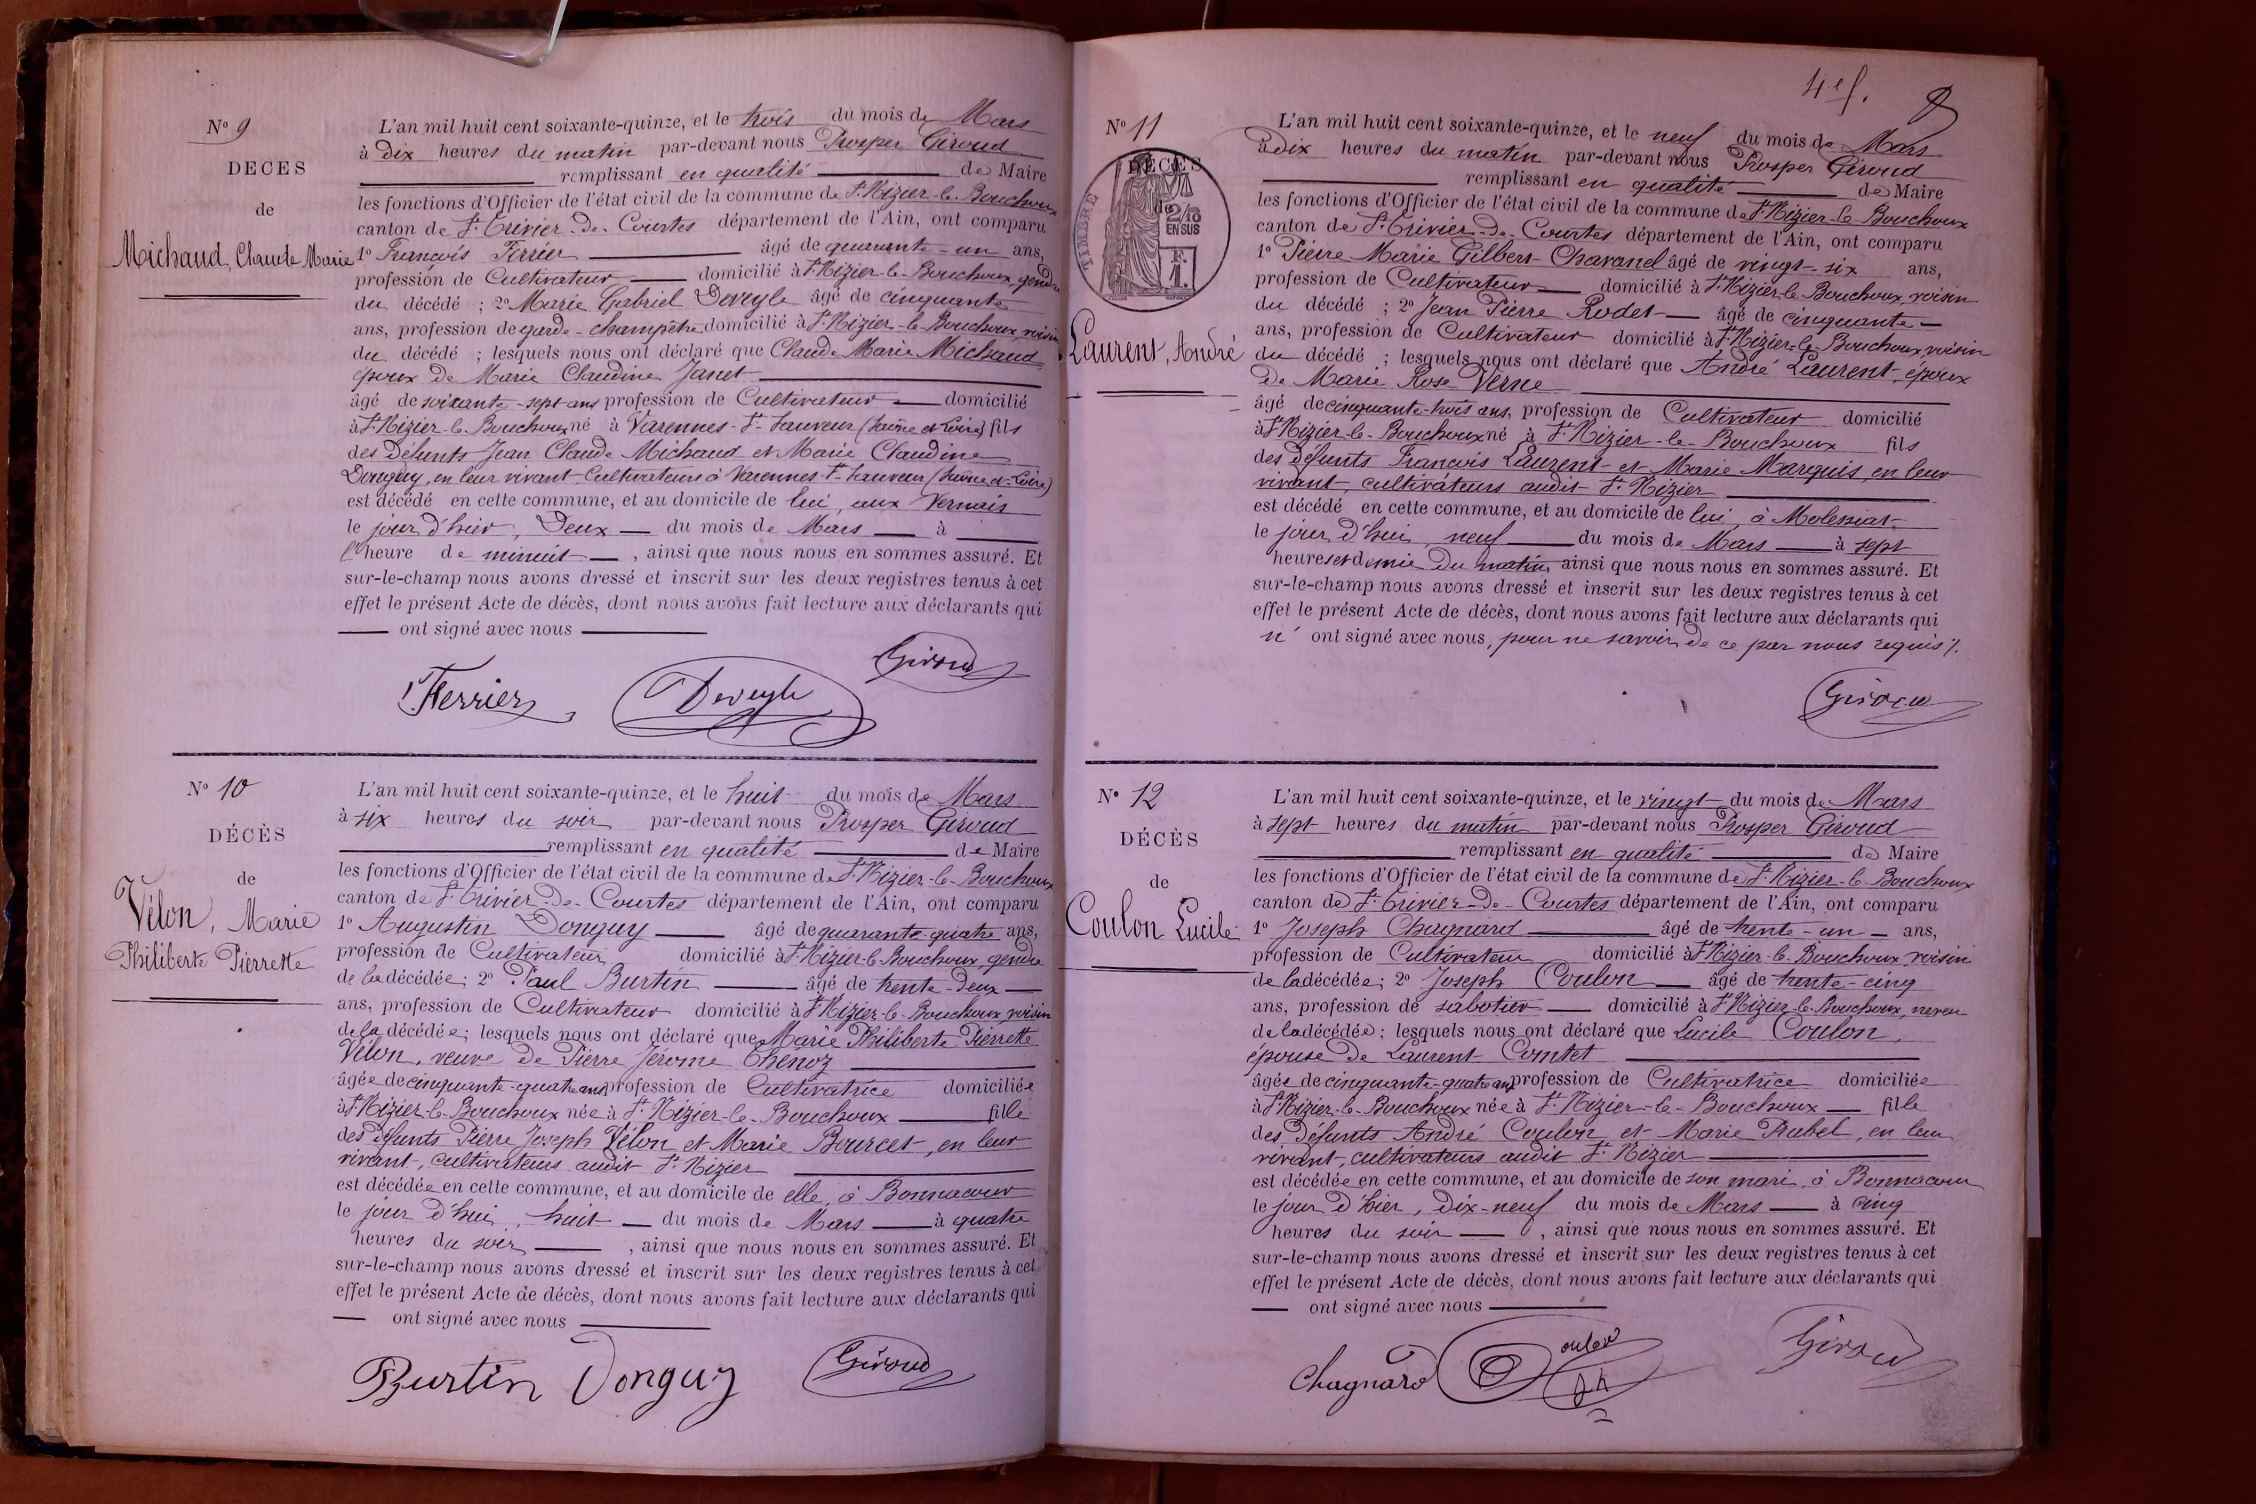 N° 9
DECES
de
Michaud, Claude Marie
L'an mil huit cent soixante-quinze, et le trois du mois de Mars
à dix heures du matin par-devant nous Prosper Giroud
remplissant en qualité de Maire
les fonctions d'Officier de l'état civil de la commune de St Nizier-le-Bouchoux
canton de St Trivier-de-Courtes département de l'Ain, ont comparu
1° François Ferrier âgé de quarante-un ans,
profession de Cultivateur domicilié à St Nizier-le-Bouchoux, gendre
du décédé ; 2° Marie Gabriel Deveyle âgé de cinquante
ans, profession de garde-champêtre domicilié à St Nizier-le-Bouchoux, voisin
du décédé ; lesquels nous ont déclaré que Claude Marie Michaud
époux de Marie Claudine Janet
âgé de soixante-sept ans profession de Cultivateur domicilié
à St Nizier-le-Bouchoux né à Varennes-St-Sauveur (Saône et Loire) fils
des défunts Jean Claude Michaud et Marie Claudine
Donguy, en leur vivant Cultivateurs à Varennes-St-Sauveur (Saône et Loire)
est décédé en cette commune, et au domicile de lui, aux Vernais
le jour d'hier, Deux du mois de Mars à
l'heure de minuit , ainsi que nous nous en sommes assuré. Et
sur-le-champ nous avons dressé et inscrit sur les deux registres tenus à cet
effet le présent Acte de décès, dont nous avons fait lecture aux déclarants qui
ont signé avec nous
Giroud
Ferrier Deveyle
N° 10
DÉCÈS
de
Vélon, Marie
Philiberte Pierrette
L'an mil huit cent soixante-quinze, et le huit du mois de Mars
à six heures du soir par-devant nous Prosper Giroud
remplissant en qualité de Maire
les fonctions d'Officier de l'état civil de la commune de St Nizier-le-Bouchoux
canton de St Trivier-de-Courtes département de l'Ain, ont comparu
1° Augustin Donguy âgé de quarante-quatre ans,
profession de Cultivateur domicilié à St Nizier-le-Bouchoux, gendre
de la décédée ; 2° Paul Burtin âgé de trente-deux
ans, profession de Cultivateur domicilié à St Nizier-le-Bouchoux, voisin
de la décédée ; lesquels nous ont déclaré que Marie Philiberte Pierrette
Vélon, veuve de Pierre Jérome Chenoz
âgée de cinquante-quatre ans profession de Cultivatrice domiciliée
à St Nizier-le-Bouchoux née à St Nizier-le-Bouchoux fille
des défunts Pierre Joseph Vélon et Marie Bourcet, en leur
vivant, cultivateurs audit St Nizier
est décédée en cette commune, et au domicile de elle, à Bonnacour
le jour d'hui, huit du mois de Mars à quatre
heures du soir , ainsi que nous nous en sommes assuré. Et
sur-le-champ nous avons dressé et inscrit sur les deux registres tenus à cet
effet le présent Acte de décès, dont nous avons fait lecture aux déclarants qui
ont signé avec nous
Burtin Donguy Giroud
4e f. 8
N° 11
DÉCÈS
de
TIMBRE
2/10
EN SUS
F.
1.
Laurent, André
L'an mil huit cent soixante-quinze, et le neuf du mois de Mars
à dix heures du matin par-devant nous Prosper Giroud
remplissant en qualité de Maire
les fonctions d'Officier de l'état civil de la commune de St Nizier-le-Bouchoux
canton de St Trivier-de-Courtes département de l'Ain, ont comparu
1° Pierre Marie Gilbert Chavanel âgé de vingt-six ans,
profession de Cultivateur domicilié à St Nizier-le-Bouchoux, voisin
du décédé ; 2° Jean Pierre Rodet âgé de cinquante
ans, profession de Cultivateur domicilié à St Nizier-le-Bouchoux, voisin
du décédé ; lesquels nous ont déclaré que André Laurent, époux
de Marie Rose Verne
âgé de cinquante-trois ans, profession de Cultivateur domicilié
à St Nizier-le-Bouchoux né à St Nizier-le-Bouchoux fils
des défunts François Laurent et Marie Marquis, en leur
vivant, cultivateurs audit St Nizier
est décédé en cette commune, et au domicile de lui, à Molessiat
le jour d'hui, neuf du mois de Mars à sept
heures et demie du matin, ainsi que nous nous en sommes assuré. Et
sur-le-champ nous avons dressé et inscrit sur les deux registres tenus à cet
effet le présent Acte de décès, dont nous avons fait lecture aux déclarants qui
n' ont signé avec nous, pour ne savoir, de ce par nous requis /.
Giroud
N° 12
DÉCÈS
de
Coulon Lucile
L'an mil huit cent soixante-quinze, et le vingt du mois de Mars
à sept heures du matin par-devant nous Prosper Giroud
remplissant en qualité de Maire
les fonctions d'Officier de l'état civil de la commune de St Nizier-le-Bouchoux
canton de St Trivier-de-Courtes département de l'Ain, ont comparu
1° Joseph Chagnard âgé de trente-un ans,
profession de Cultivateur domicilié à St Nizier-le-Bouchoux, voisin
de la décédée ; 2° Joseph Coulon âgé de trente-cinq
ans, profession de sabotier domicilié à St Nizier-le-Bouchoux, neveu
de la décédée ; lesquels nous ont déclaré que Lucile Coulon,
épouse de Laurent Comtet
âgée de cinquante-quatre ans profession de Cultivatrice domiciliée
à St Nizier-le-Bouchoux née à St Nizier-le-Bouchoux fille
des défunts André Coulon et Marie Rubel, en leur
vivant, cultivateurs audit St Nizier
est décédée en cette commune, et au domicile de son mari, à Bonnacour
le jour d'hier, dix-neuf du mois de Mars à cinq
heures du soir , ainsi que nous nous en sommes assuré. Et
sur-le-champ nous avons dressé et inscrit sur les deux registres tenus à cet
effet le présent Acte de décès, dont nous avons fait lecture aux déclarants qui
ont signé avec nous
Chagnard Coulon Giroud